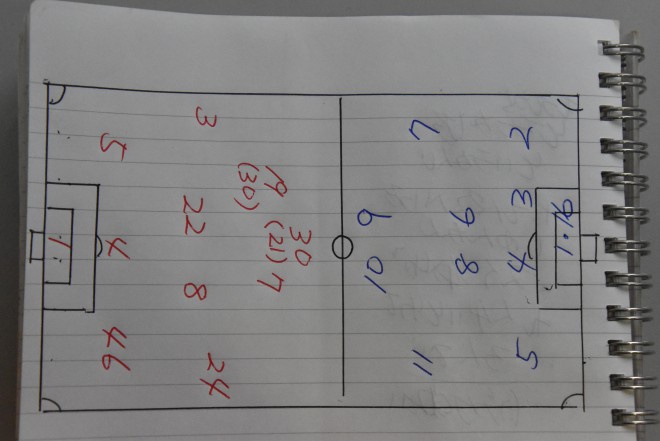 30
19 (21) 7
(30)
3 22 8 24
5 4 46
1
10 9
11 7
8 6
5 4 3 2
1·16